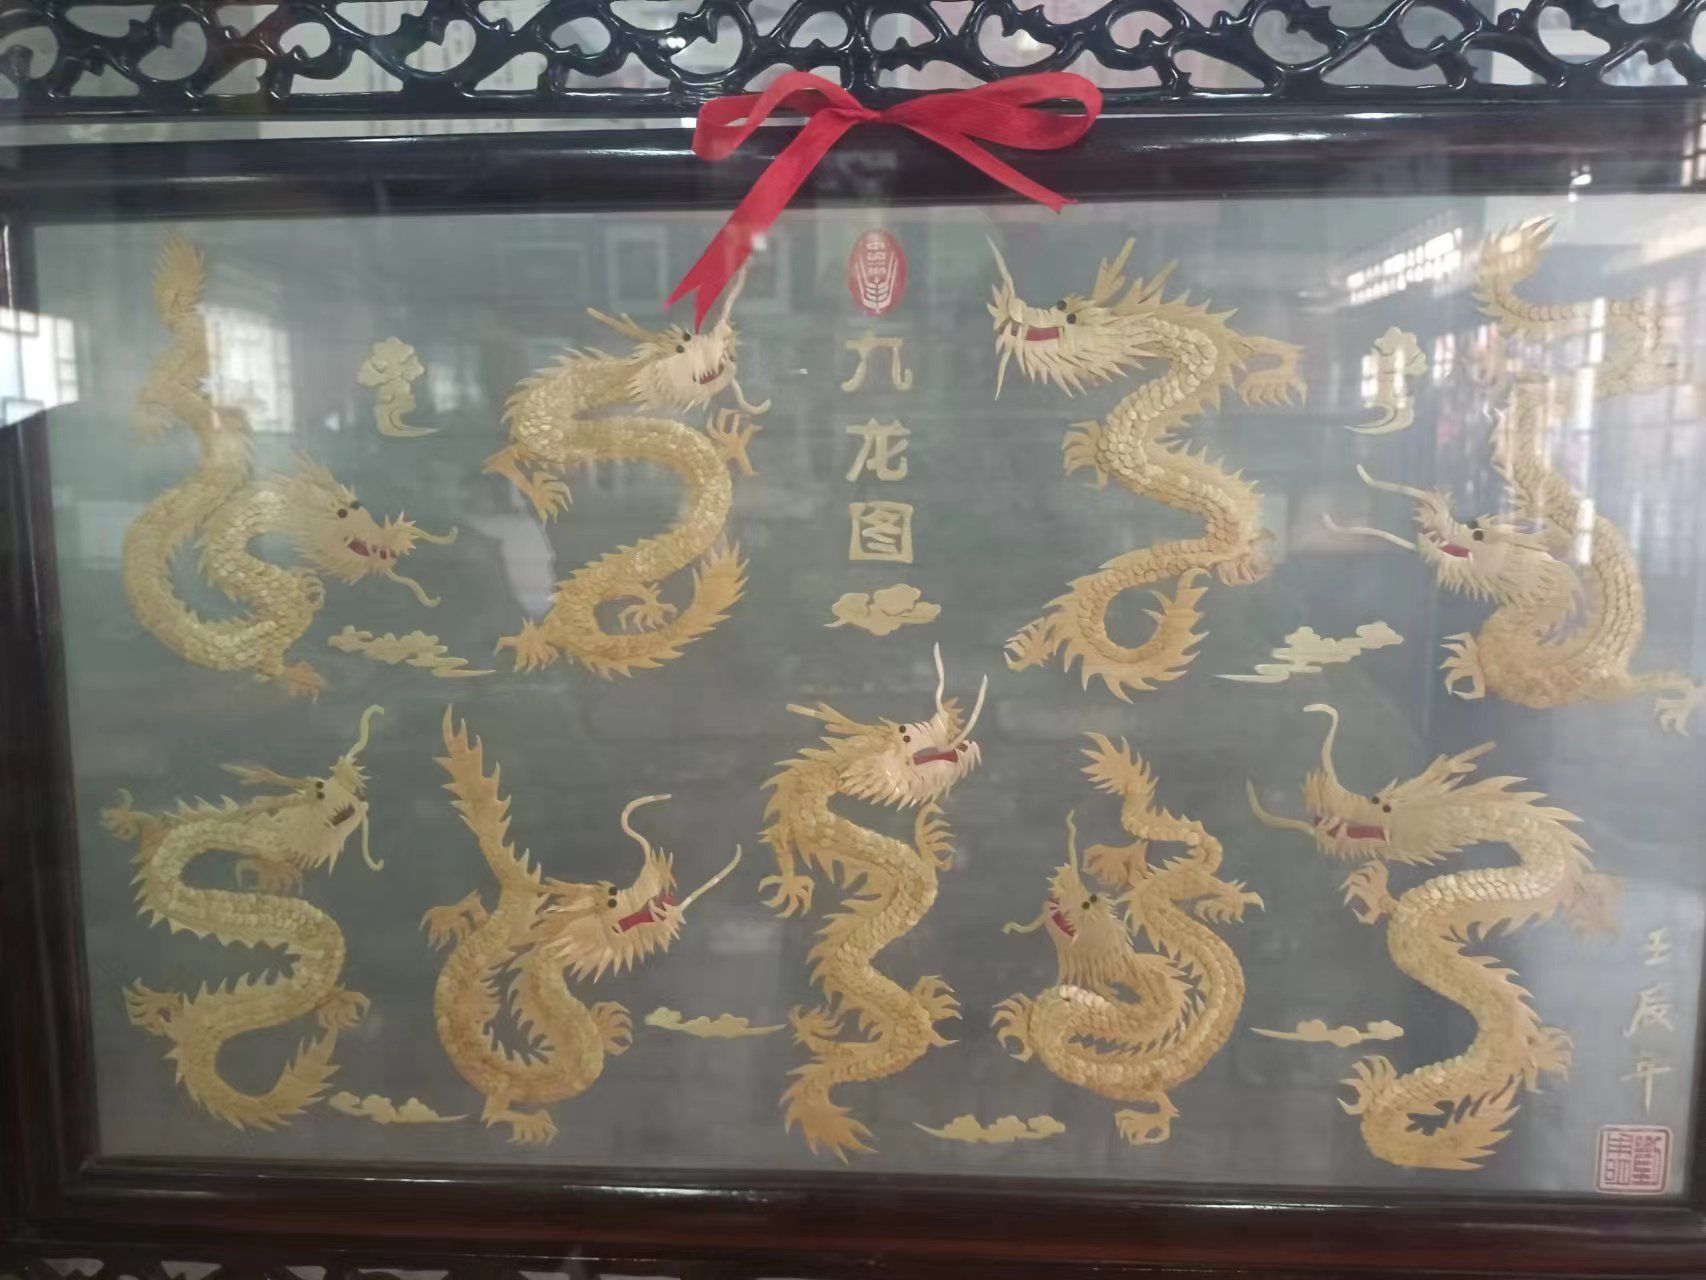 九龙图
壬辰年